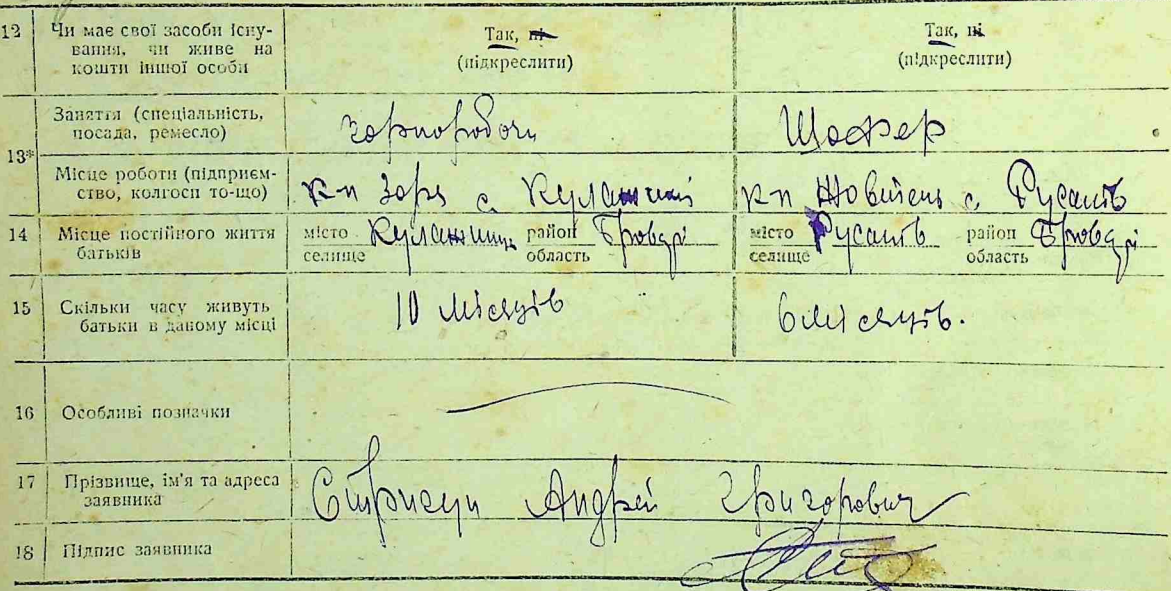 12 Чи має свої засоби існу-
вання, чи живе на
кошти іншої особи
Так, ні
(підкреслити)
Так, ні
(підкреслити)
13* Заняття (спеціальність,
посада, ремесло)
чорноробочи
Шофер
Місце роботи (підприєм-
ство, колгосп то-що)
кп Зоря с.
кп Жовтень с. Русанів
14 Місце постійного життя
батьків
місто селище район Броварі область
місто селище Русанів район Броварі область
15 Скільки часу живуть
батьки в даному місці
10 місяців
6 місяців.
16 Особливі позначки
17 Прізвище, ім'я та адреса
заявника
Андрей Григорович
18 Підпис заявника